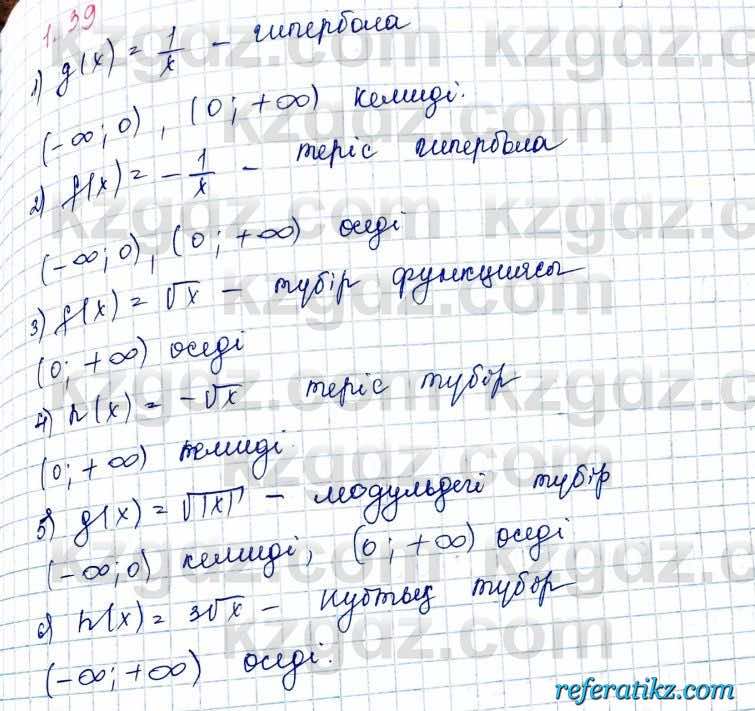 1.39
1) g(x) = 1/x - гипербола
(-∞; 0), (0; +∞) кемиді.
2) f(x) = - 1/x - теріс гипербола
(-∞; 0), (0; +∞) өседі
3) f(x) = √x - түбір функциясы
(0; +∞) өседі
4) h(x) = -√x теріс түбір
(0; +∞) кемиді.
5) g(x) = √|x| - модульдегі түбір
(-∞; 0) кемиді, (0; +∞) өседі
6) h(x) = 3√x - кубтық түбір
(-∞; +∞) өседі.
kzgdz.com
referatikz.com